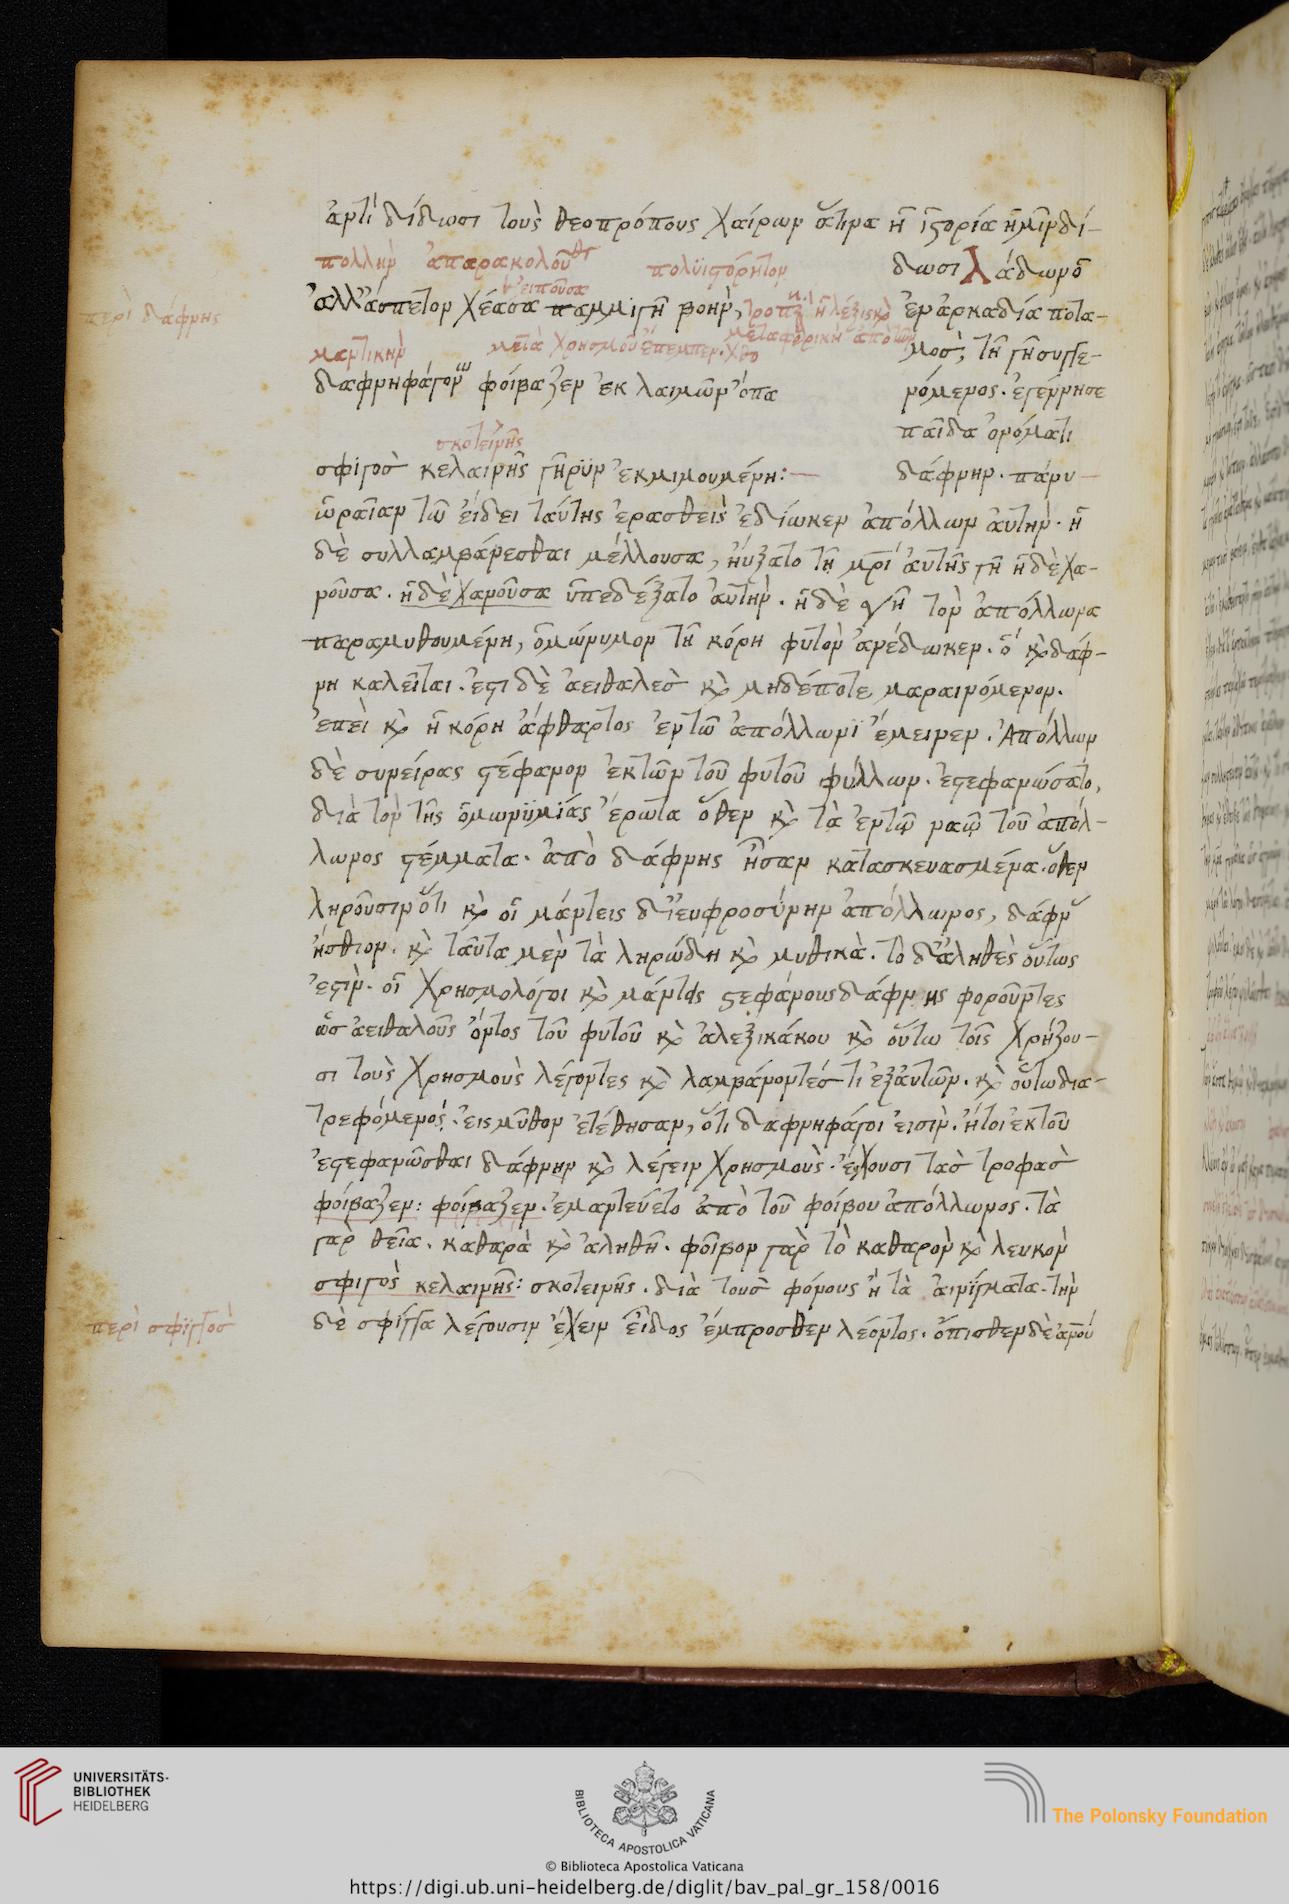 ἀντὶ δίδωσι τοὺς θεοπρόπους χαίρων ἅτινα ἡ ἱστορία ἡμῖν δί-
πολλὴν ἀπαρακολούθητ πολυϊστόρητον
δωσι Λάδων ὁ
εἰποῦσα
περὶ δάφνης
ἀλλ' ἄσπετον χέασα παμμιγῆ βοὴν,
ἐν ἀρκαδία ποτα-
μεταφορικὴ ἀπὸ τῶν
μαντικὴν μετὰ χρησμοῦ ἔπεμπεν.
μὸς, τῇ γῇ συγγε-
δαφνηφάγων φοίβαζεν ἐκ λαιμῶν ὄπα
νόμενος. ἐγέννησε
παῖδα ὀνόματι
σκοτεινῆς
σφιγὸς κελαινῆς γῆρϋν ἐκμιμουμένη:
δάφνην. πάνυ
ὡραῖαν τῶ εἴδει ταύτης ἐρασθεὶς ἐδίωκεν ἀπόλλων ἀυτὴν. ἡ
δὲ συλλαμβάνεσθαι μέλλουσα, ηὔξατο τῇ μρὶ ἀυτῆς γῇ ἡ δὲ χα-
νοῦσα. ἡ δὲ χανοῦσα ὑπεδέξατο ἀυτὴν. ἡ δὲ γῆ τὸν ἀπόλλωνα
παραμυθουμένη, ὁμώνυμον τῇ κόρη φυτὸν ἀνέδωκεν. ὃ κὴ δάφ-
νη καλεῖται. ἐστὶ δὲ ἀειθαλὲς κὴ μηδέποτε μαραινόμενον.
ἐπεὶ κὴ ἡ κόρη ἄφθαρτος ἐν τῶ ἀπόλλωνϊ ἔμεινεν. Ἀπόλλων
δὲ συνείρας στέφανον ἐκ τῶν τοῦ φυτοῦ φύλλων. ἐστεφανώσατο,
διὰ τὸν τῆς ὁμωνϋμίας ἔρωτα ὅθεν κὴ τὰ ἐν τῷ ναῷ τοῦ ἀπόλ-
λωνος στέμματα. ἀπὸ δάφνης ἦσαν κατασκευασμένα. ὅθεν
ληροῦσιν ὅτι κὴ οἱ μάντεις δι' ευφροσύνην ἀπόλλωνος, δάφν
ἤσθιον. κὴ ταῦτα μὲν τὰ ληρώδη κὴ μυθικὰ. τὸ δ' ἀληθὲς οὕτως
ἐστὶν. οἱ χρησμολόγοι κὴ μάντεις στεφάνους δάφνης φοροῦντες
ὡς ἀειθαλοῦς ὄντος τοῦ φυτοῦ κὴ ἀλεξικάκου κὴ οὕτω τοῖς χρήζου-
σι τοὺς χρησμοὺς λέγοντες κὴ λαμβάνοντές τι ἐξ ἀυτῶν. κὴ οὕτω δια-
τρεφόμενος. εἰς μῦθον ἐτέθησαν, ὅτι δαφνηφάγοι εἰσὶν. ἤτοι ἐκ τοῦ
ἐστεφανῶσθαι δάφνην κὴ λέγειν χρησμοὺς. ἔχουσι τὰς τροφὰς
φοίβαζεν: φοίβαζεν. ἐμαντεύετο ἀπὸ τοῦ φοίβου ἀπόλλωνος. τὰ
γαρ θεῖα. καθαρὰ κὴ ἀληθῆ. φοῖβον γὰρ τὸ καθαρὸν κὴ λευκὸν
σφιγὸς κελαινῆς: σκοτεινῆς. διὰ τοὺς φόνους ἢ τὰ ἀινίγματα. τὴν
περὶ σφιϊγγὸς
δὲ σφίγγα λέγουσιν ἔχειν εἶδος ἔμπροσθεν λέοντος. ὄπισθεν δὲ ἀνου
UNIVERSITÄTS-
BIBLIOTHEK
HEIDELBERG
BIBLIOTECA APOSTOLICA VATICANA
The Polonsky Foundation
© Biblioteca Apostolica Vaticana
https://digi.ub.uni-heidelberg.de/diglit/bav_pal_gr_158/0016